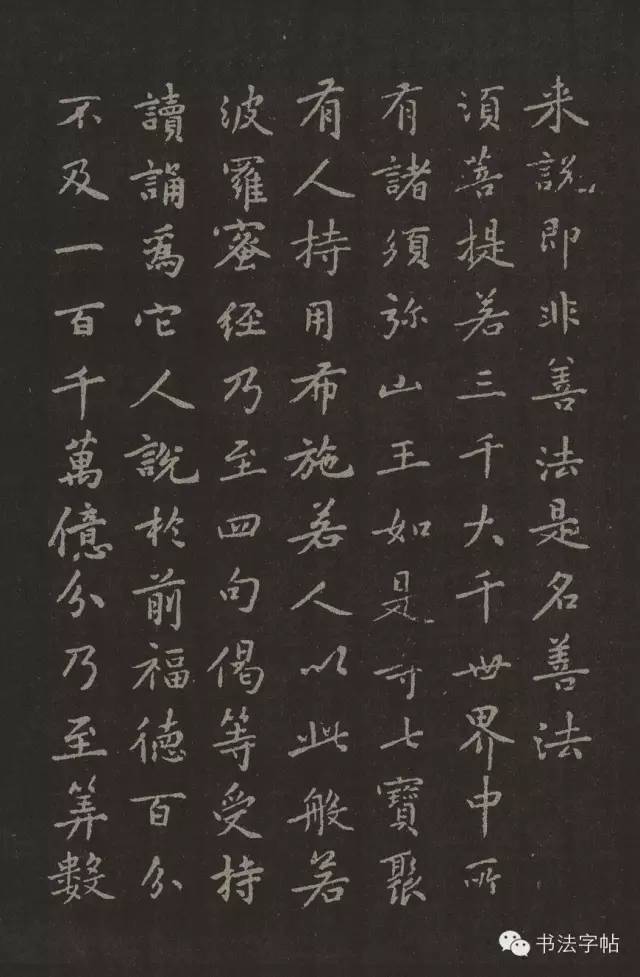 来說即非善法是名善法
須菩提若三千大千世界中所
有諸須弥山王如是等七寶聚
有人持用布施若人以此般若
波羅蜜經乃至四句偈等受持
讀誦爲它人說於前福德百分
不及一百千萬億分乃至筭數
书法字帖